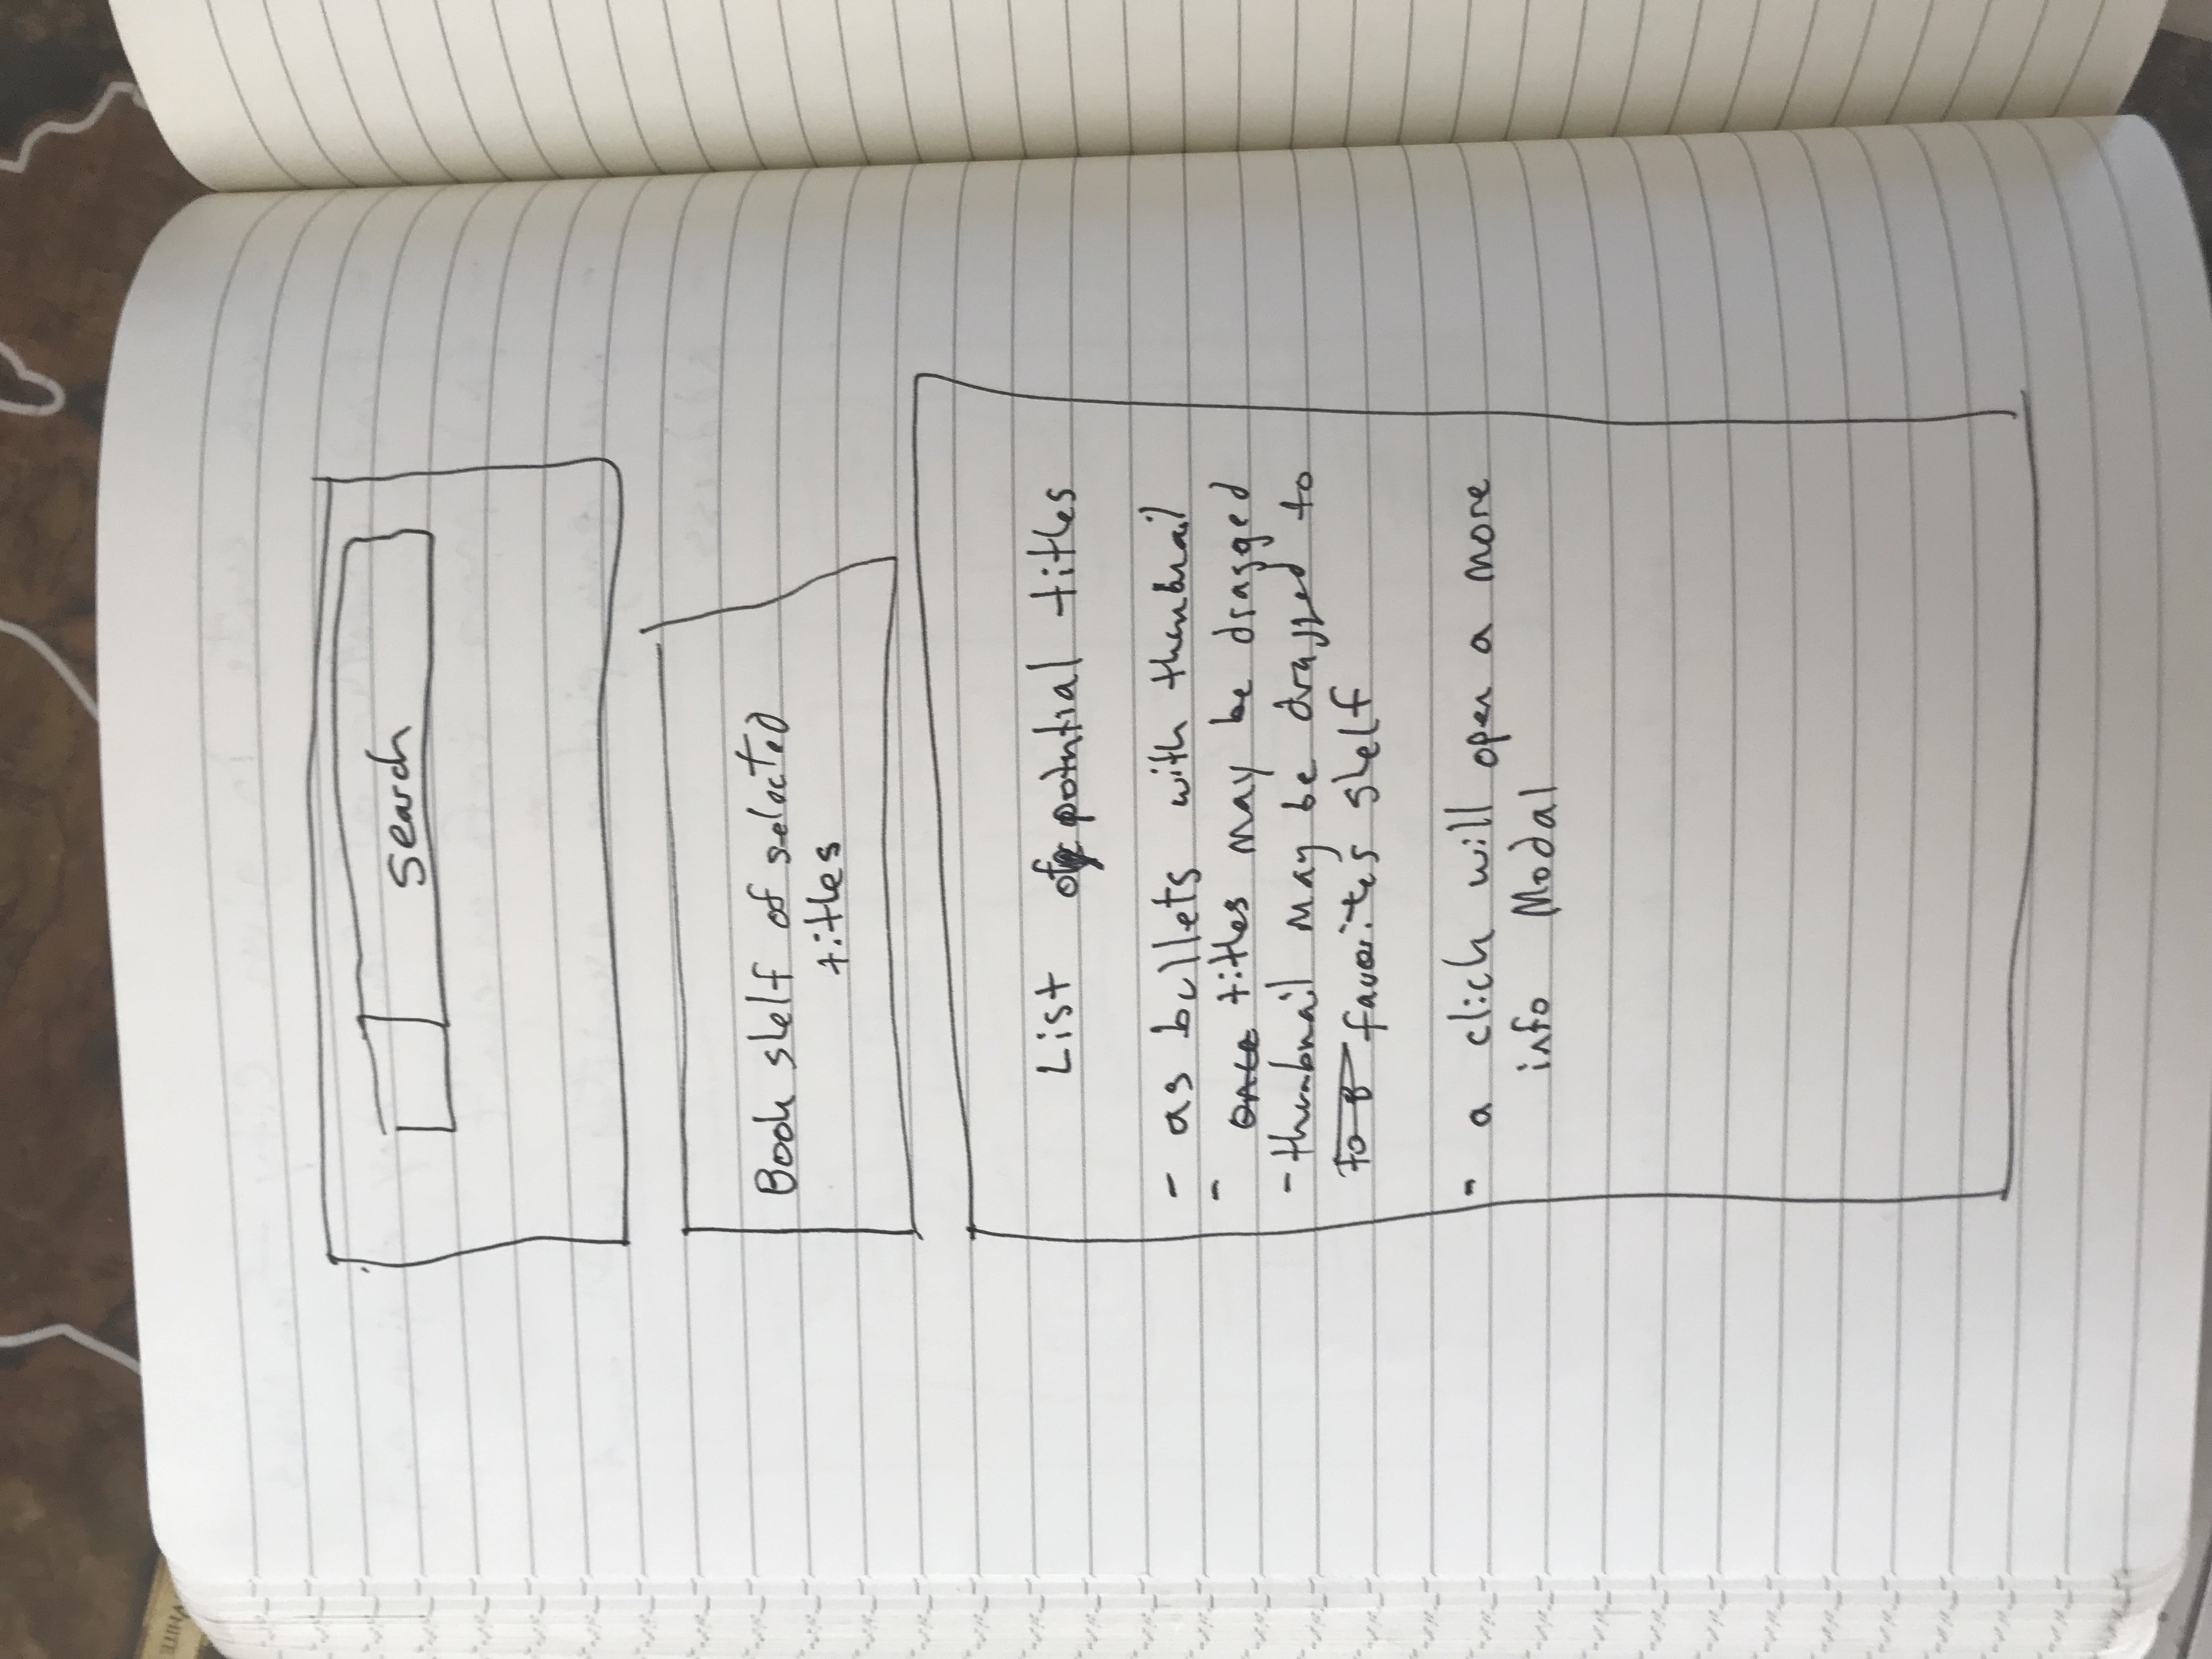 search
Book shelf of selected
titles
List of potntial titles
- as bullets with thumbnail
- once titles may be dragged
- thumbnail may be dragged to
to favorites shelf
- a click will open a more
info Modal